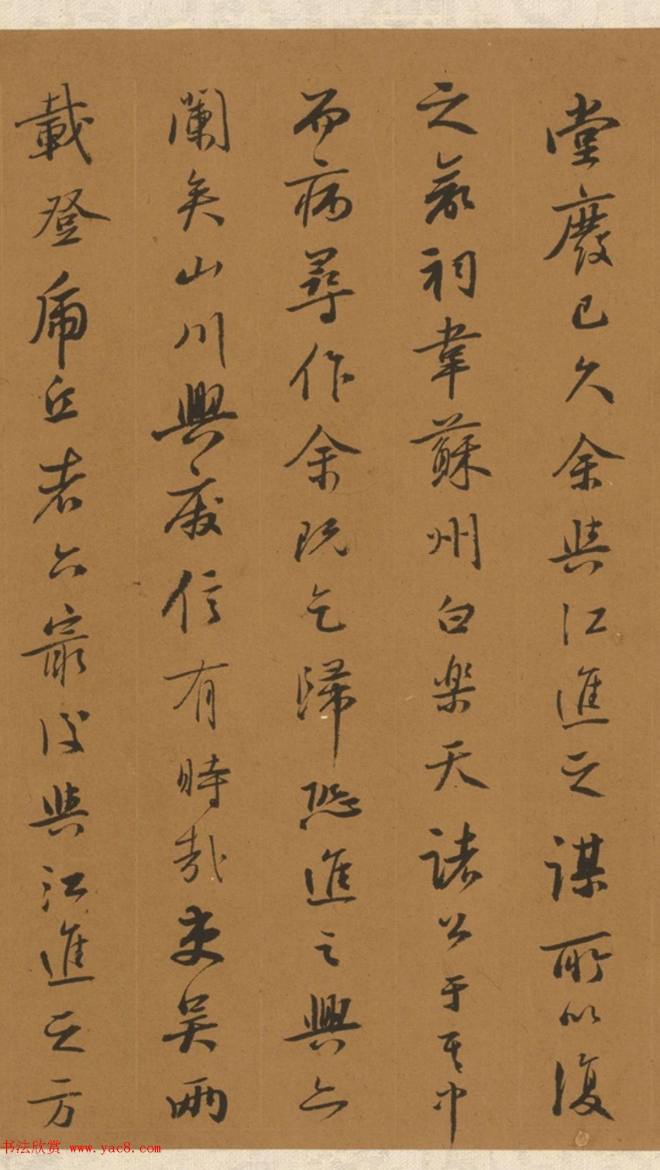 堂廢已久余與江進之謀所以復
之欲祠韋蘇州白樂天諸公于其中
而病尋作余既乞歸恐進之興亦
闌矣山川興廢信有時哉吏吴兩
載登虎丘者六最後與江進之方
书法欣赏 www.yac8.com